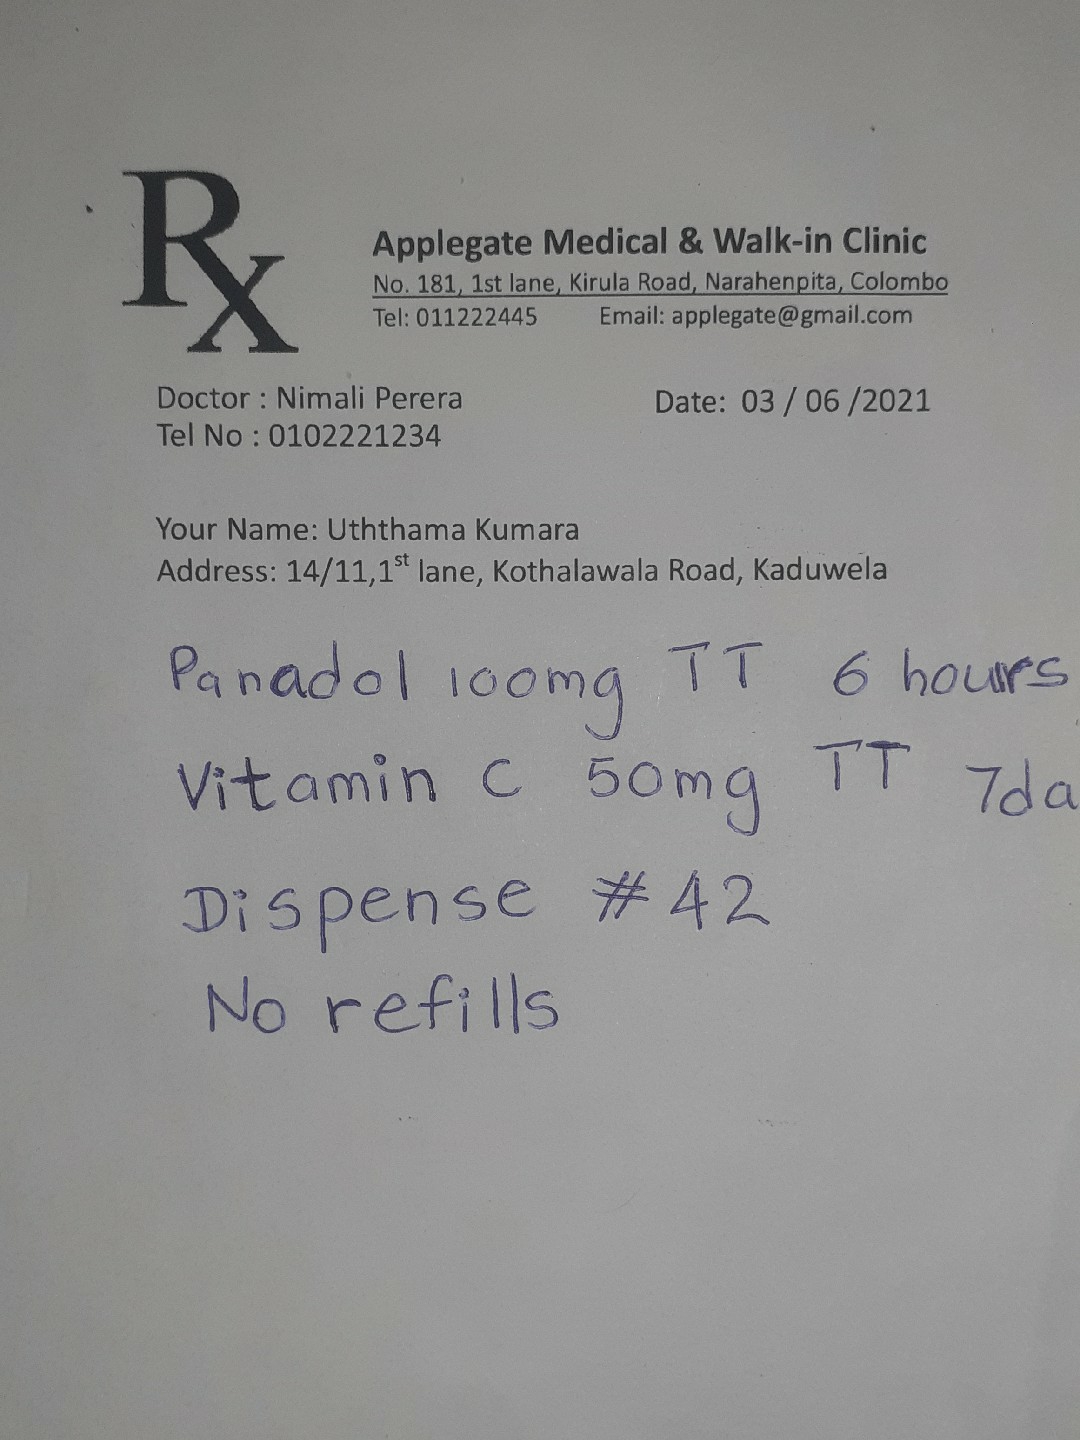 Rx
Applegate Medical & Walk-in Clinic
No. 181, 1st lane, Kirula Road, Narahenpita, Colombo
Tel: 011222445 Email: applegate@gmail.com
Doctor : Nimali Perera Date: 03 / 06 /2021
Tel No : 0102221234
Your Name: Uththama Kumara
Address: 14/11,1st lane, Kothalawala Road, Kaduwela
Panadol 100mg TT 6 hours
Vitamin C 50mg TT 7da
Dispense #42
No refills